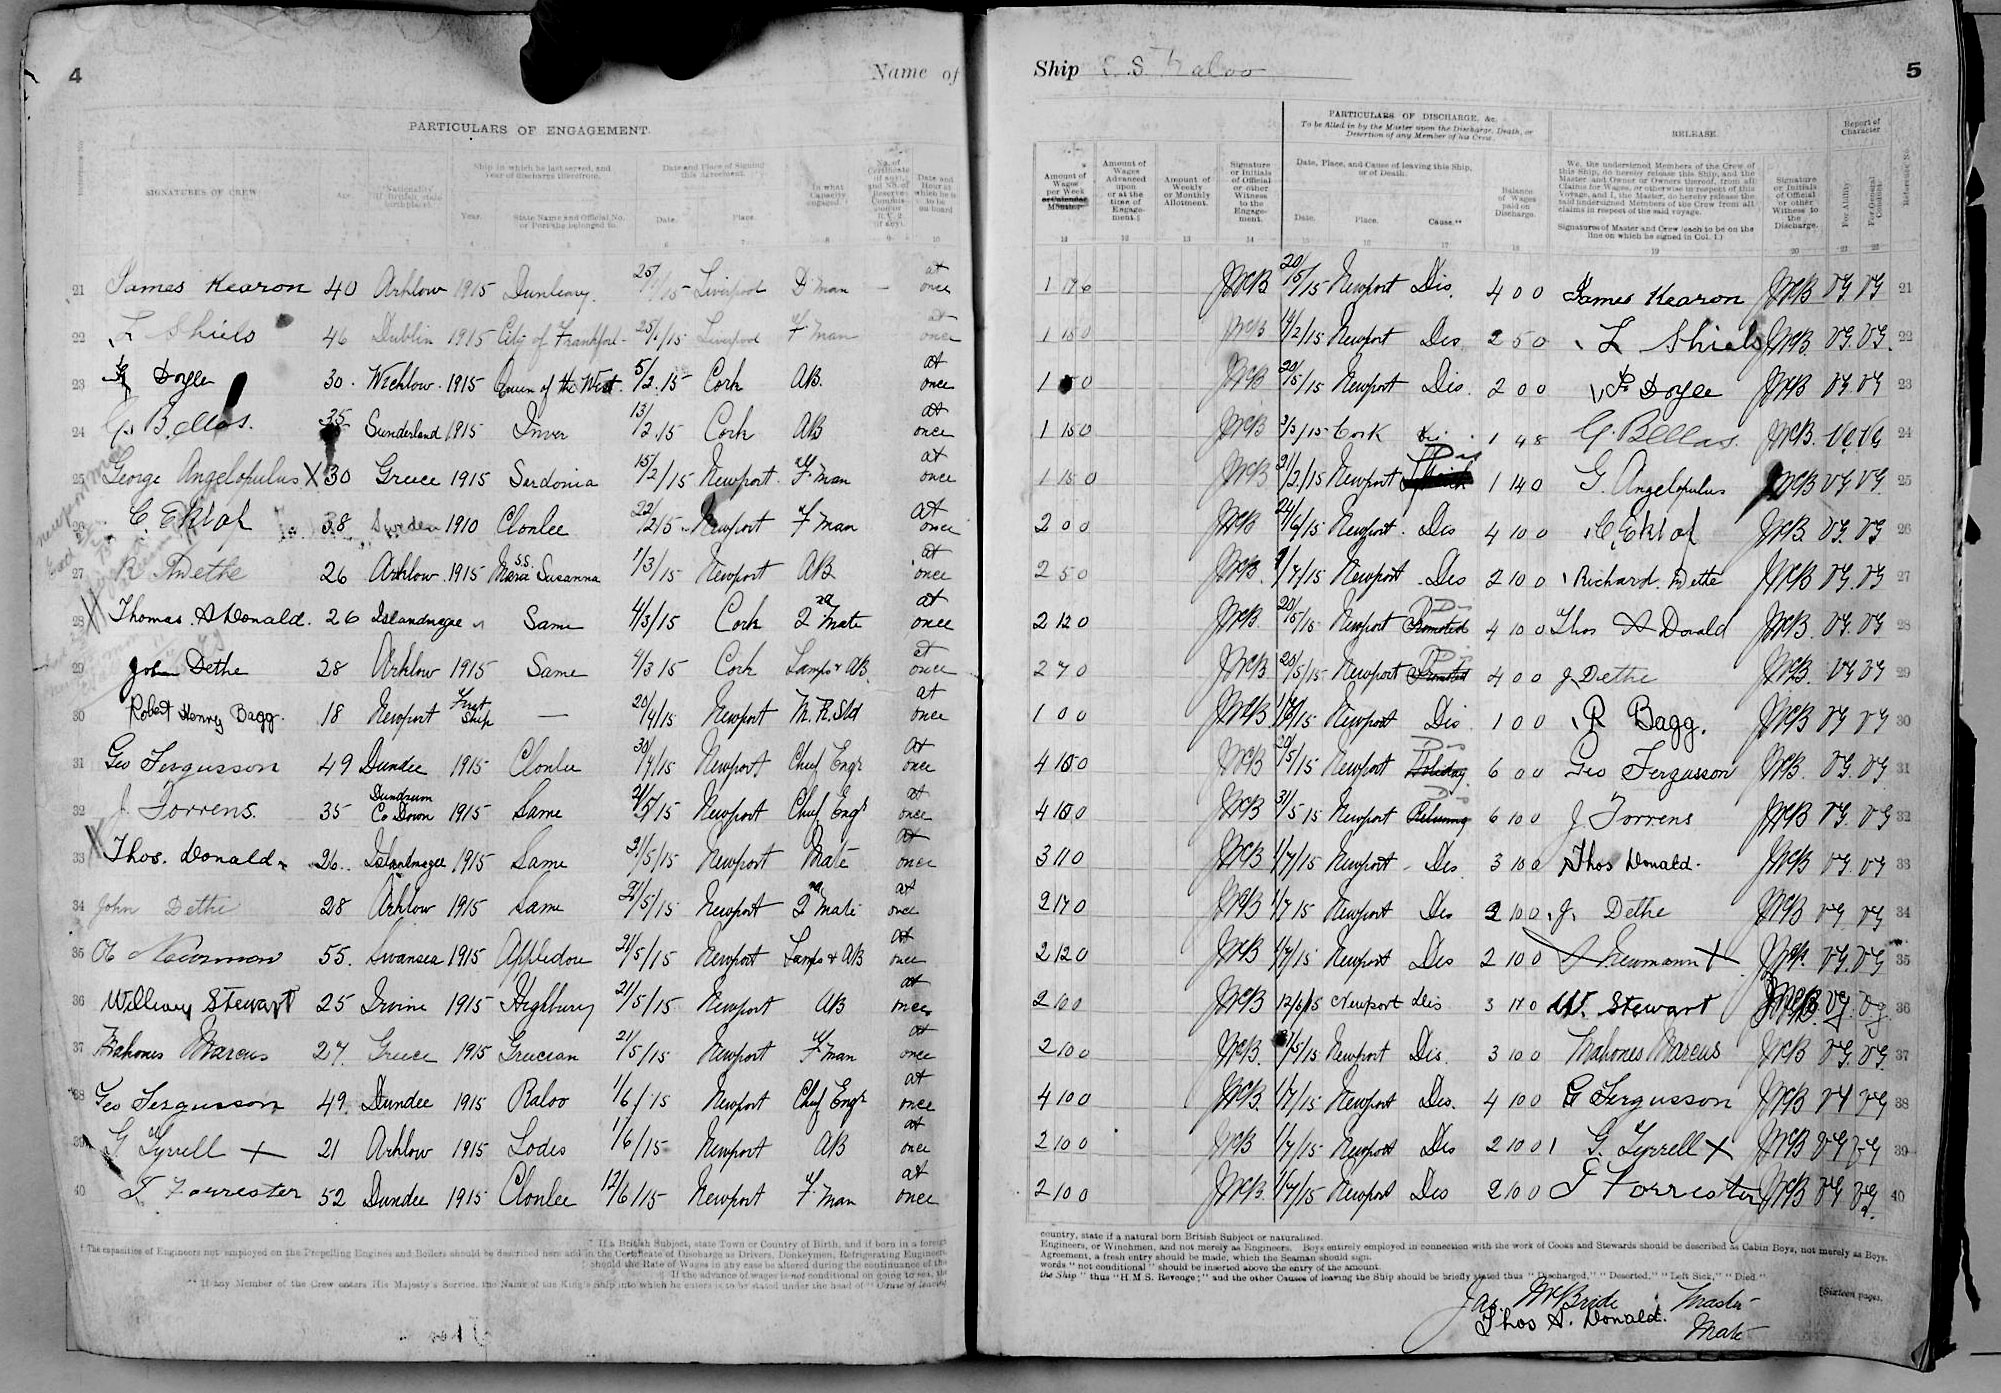 4
Name of
PARTICULARS OF ENGAGEMENT.
SIGNATURES OF CREW
Age
Nationality
Ship in which he last served, and Year of discharge therefrom.
Year.
State Name and Official No. or Port she belonged to.
Date and Place of Signing this Agreement.
Date.
Place.
In what Capacity engaged.
Date and Hour at which he is to be on board
21 James Kearon 40 Arklow 1915 Dunleary. 25/1/15 Liverpool D'man — at once
22 L Shiels 46 Dublin 1915 City of Frankfort 25/1/15 Liverpool F'man at once
23 Doyle 30. Wicklow 1915 Queen of the West. 5/2.15 Cork AB. at once
24 G. Bellas. 35 Sunderland 1915 Inver 13/2.15 Cork AB at once
25 George Angelopulus X 30 Greece 1915 Sardonia 15/2/15 Newport. F'man at once
26 C. Eklof 38 Sweden 1910 Clonlee 22/2/15 Newport F'man at once
27 R Dethe 26 Arklow 1915 S.S. Mara Susanna 1/3/15 Newport AB at once
28 Thomas. A Donald. 26 Islandmagee " Same 4/3/15 Cork 2nd Mate at once
29 John Dethe 28 Arklow 1915 Same 4/3 15 Cork Lamps & AB. at once
30 Robert Henry Bagg. 18 Newport First Ship — 20/4/15 Newport M. R. Std at once
31 Geo Fergusson 49 Dundee 1915 Clonlee 30/4/15 Newport Chief Engr at once
32 J. Torrens. 35 Dundrum Co Down 1915 Same 21/5/15 Newport Chief Engr at once
33 Thos. Donald. 26. Islandmagee 1915 Same 21/5/15 Newport Mate at once
34 John Dethe 28 Arklow 1915 Same 21/5/15 Newport 2nd Mate at once
35 Newman 55. Swansea 1915 Appledore 21/5/15 Newport Lamps & AB at once
36 William Stewart 25 Irvine 1915 Highbury 21/5/15 Newport AB at once
37 Mahones Marcus 27. Greece 1915 Grecian 21/5/15 Newport F'man at once
38 Geo Fergusson 49. Dundee 1915 Raloo 1/6/15 Newport Chief Engr at once
39 G Tyrrell X 21 Arklow 1915 Lodes 1/6/15 Newport AB at once
40 T Forrester 52 Dundee 1915 Clonlee 12/6/15 Newport F'man at once
† The capacities of Engineers not employed on the Propelling Engines and Boilers should be described here and in the Certificate of Discharge as Drivers, Donkeymen, Refrigerating Engineers
* If a British Subject, state Town or Country of Birth, and if born in a foreign
should the Rate of Wages in any case be altered during the continuance of the
‡ If the advance of wages is not conditional on going to sea, the
** If any Member of the Crew enters His Majesty's Service, the Name of the King's Ship into which he enters is to be stated under the head of "Cause of leaving
Ship S.S. Raloo
5
PARTICULARS OF DISCHARGE, &c.
To be filled in by the Master upon the Discharge, Death, or Desertion of any Member of his Crew.
RELEASE.
Report of Character
Amount of Wages per Week or Calendar Month
Amount of Wages Advanced upon or at the time of Engagement.‡
Amount of Weekly or Monthly Allotment.
Signature or Initials of Official or other Witness to the Engagement.
Date, Place, and Cause of leaving this Ship, or of Death.
Date.
Place.
Cause.**
Balance of Wages paid on Discharge.
We, the undersigned Members of the Crew of this Ship, do hereby release this Ship, and the Master and Owner or Owners thereof, from all Claims for Wages, or otherwise in respect of this Voyage, and I, the Master, do hereby release the said undersigned Members of the Crew from all claims in respect of the said voyage.
Signatures of Master and Crew (each to be on the line on which he signed in Col. 1.)
Signature or Initials of Official or other Witness to the Discharge.
For Ability
For General Conduct
Reference No.
11 12 13 14 15 16 17 18 19 20 21 22
1 17 6 JMcB 20/5/15 Newport Dis. 4 0 0 James Kearon JMcB VG VG 21
1 15 0 JMcB 14/2/15 Newport Dis 2 5 0 L Shiels JMcB. VG. VG. 22
1 0 JMcB 20/5/15 Newport Dis. 2 0 0 Doyle JMcB VG VG 23
1 15 0 JMcB 3/3/15 Cork Dis 1 4 8 G. Bellas. JMcB. VG VG 24
1 15 0 JMcB 21/2/15 Newport Dis 1 14 0 G. Angelopulus JMcB VG VG. 25
2 0 0 JMcB 24/6/15 Newport. Dis 4 10 0 C. Eklof JMcB. VG. VG. 26
2 5 0 JMcB. /7/15 Newport Dis 2 10 0 Richard. Dethe JMcB VG VG 27
2 12 0 JMcB. 20/5/15 Newport Promoted Dis 4 10 0 Thos A Donald JMcB. VG. VG. 28
2 7 0 JMcB. 20/5/15 Newport Promoted Dis 4 0 0 J. Dethe JMcB. VG VG 29
1 0 0 JMcB /15 Newport Dis 1 0 0 R Bagg. JMcB VG VG 30
4 10 0 JMcB 20/5/15 Newport Holiday Dis 6 0 0 Geo Fergusson JMcB. VG. VG 31
4 10 0 JMcB 31/5 15 Newport Dis 6 10 0 J Torrens JMcB VG. VG 32
3 11 0 JMcB 1/7/15 Newport Dis 3 10 0 Thos Donald. JMcB VG VG 33
2 17 0 JMcB 1/7 15 Newport Dis 2 10 0 J. Dethe JMcB VG VG 34
2 12 0 JMcB 1/7/15 Newport Dis 2 10 0 Neumann X JMcB. VG. VG 35
2 10 0 JMcB 12/6/15 Newport dis 3 17 0 W. Stewart JMcB. Vg. Vg. 36
2 10 0 JMcB. /5/15 Newport Dis. 3 10 0 Mahones Marcus JMcB VG. VG. 37
4 10 0 JMcB. 1/7/15 Newport Dis. 4 10 0 G Fergusson JMcB VG VG 38
2 10 0 JMcB 1/7/15 Newport Dis 2 10 0 G. Tyrrell X JMcB VG VG 39
2 10 0 JMcB. 1/7/15 Newport Dis 2 10 0 T Forrester JMcB VG VG. 40
country, state if a natural born British Subject or naturalised.
Engineers, or Winchmen, and not merely as Engineers. Boys entirely employed in connection with the work of Cooks and Stewards should be described as Cabin Boys, not merely as Boys.
Agreement, a fresh entry should be made, which the Seaman should sign.
words "not conditional" should be inserted above the entry of the amount.
the Ship" thus "H.M.S. Revenge;" and the other Causes of leaving the Ship should be briefly stated thus "Discharged," "Deserted," "Left Sick," "Died."
[Sixteen pages.
Jas. McBride Master
Thos A. Donald. Mate